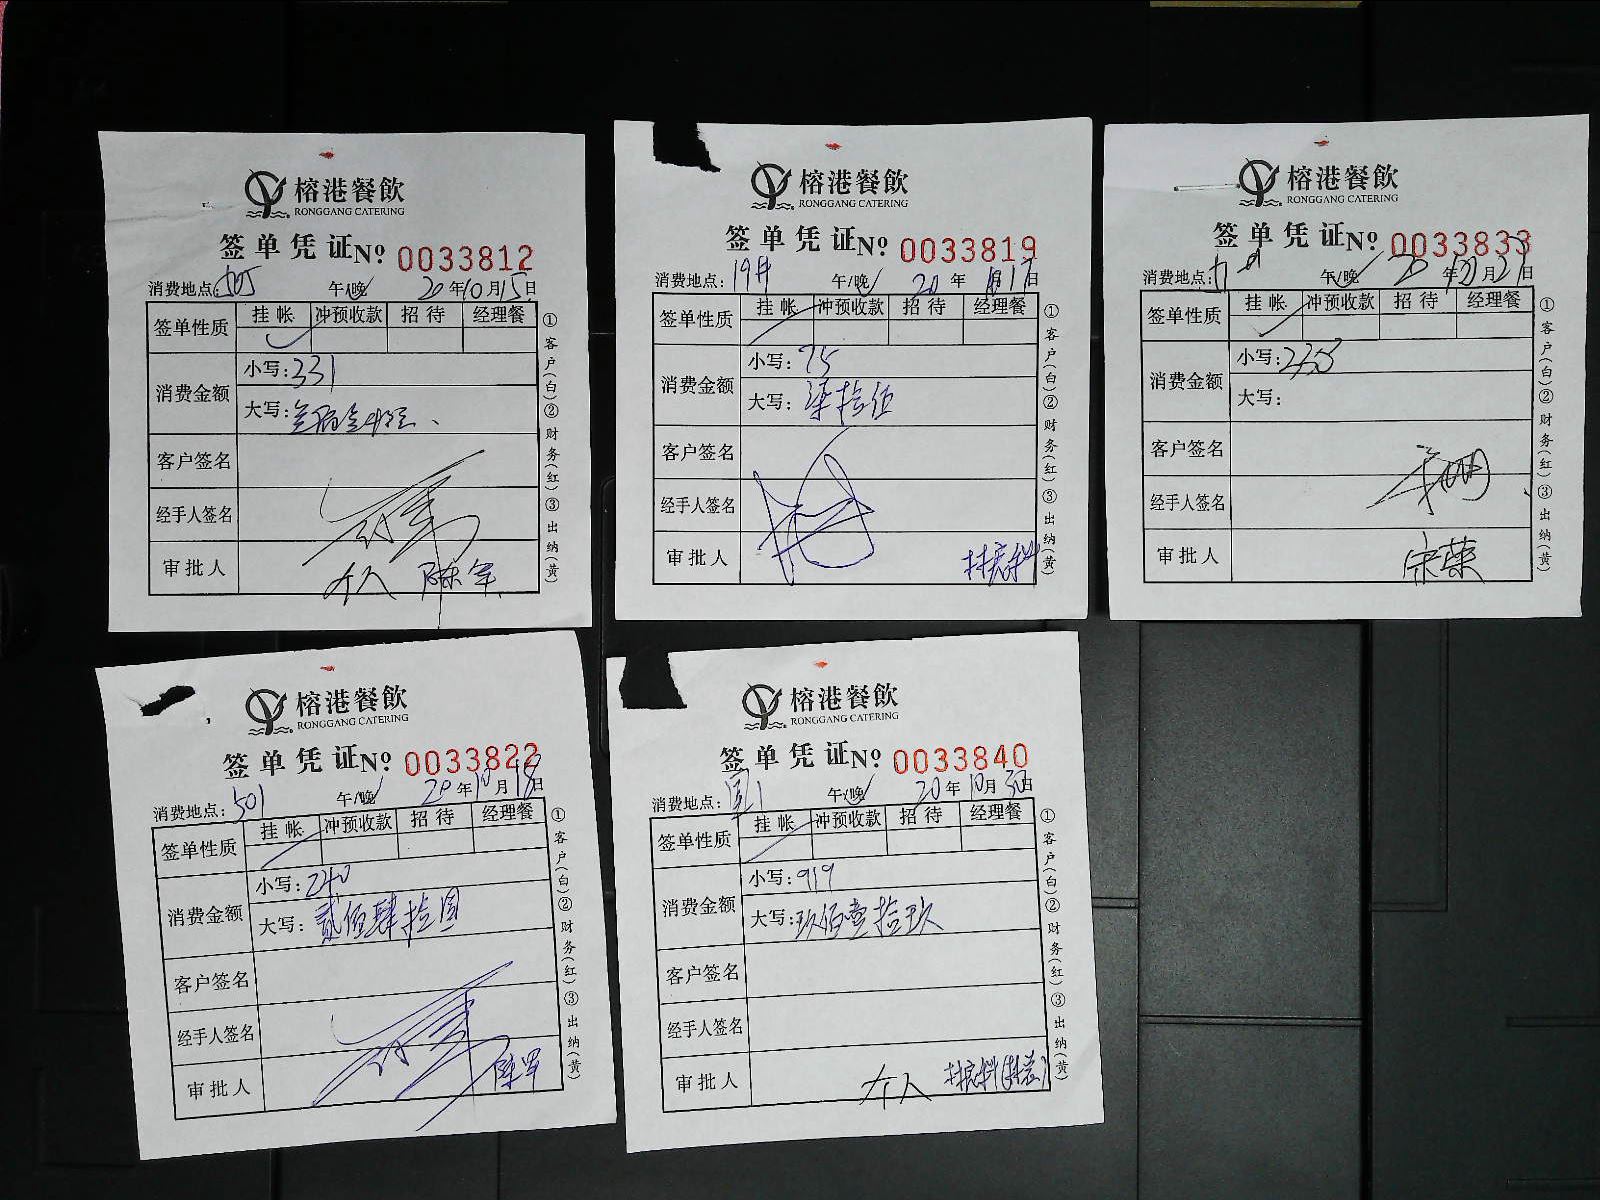 榕港餐飲
RONGGANG CATERING
签单凭证 No 0033812
消费地点: 505 午/晚 20年10月15日
签单性质 挂帐 冲预收款 招待 经理餐
消费金额 小写: 331
大写:
客户签名
经手人签名
审批人 个人 陈军
①客户(白)②财务(红)③出纳(黄)
榕港餐飲
RONGGANG CATERING
签单凭证 No 0033819
消费地点: 午/晚 20年10月17日
签单性质 挂帐 冲预收款 招待 经理餐
消费金额 小写: 75
大写: 柒拾伍
客户签名
经手人签名
审批人
①客户(白)②财务(红)③出纳(黄)
榕港餐飲
RONGGANG CATERING
签单凭证 No 0033833
消费地点: 午/晚 20年10月21日
签单性质 挂帐 冲预收款 招待 经理餐
消费金额 小写:
大写:
客户签名
经手人签名
审批人 宋荣
①客户(白)②财务(红)③出纳(黄)
榕港餐飲
RONGGANG CATERING
签单凭证 No 0033822
消费地点: 501 午/晚 20年10月18日
签单性质 挂帐 冲预收款 招待 经理餐
消费金额 小写: 240
大写: 贰佰肆拾圆
客户签名
经手人签名
审批人 陈军
①客户(白)②财务(红)③出纳(黄)
榕港餐飲
RONGGANG CATERING
签单凭证 No 0033840
消费地点: 午/晚 20年10月30日
签单性质 挂帐 冲预收款 招待 经理餐
消费金额 小写: 919
大写: 玖佰壹拾玖
客户签名
经手人签名
审批人 个人
①客户(白)②财务(红)③出纳(黄)